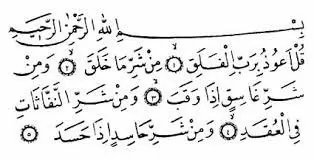 بِسْمِ اللهِ الرَّحْمٰنِ الرَّحِيمِ
قُلْ أَعُوذُ بِرَبِّ الْفَلَقِ ١ مِنْ شَرِّ مَا خَلَقَ ٢ وَمِنْ
شَرِّ غَاسِقٍ إِذَا وَقَبَ ٣ وَمِنْ شَرِّ النَّفَّاثَاتِ
فِي الْعُقَدِ ٤ وَمِنْ شَرِّ حَاسِدٍ إِذَا حَسَدَ ٥